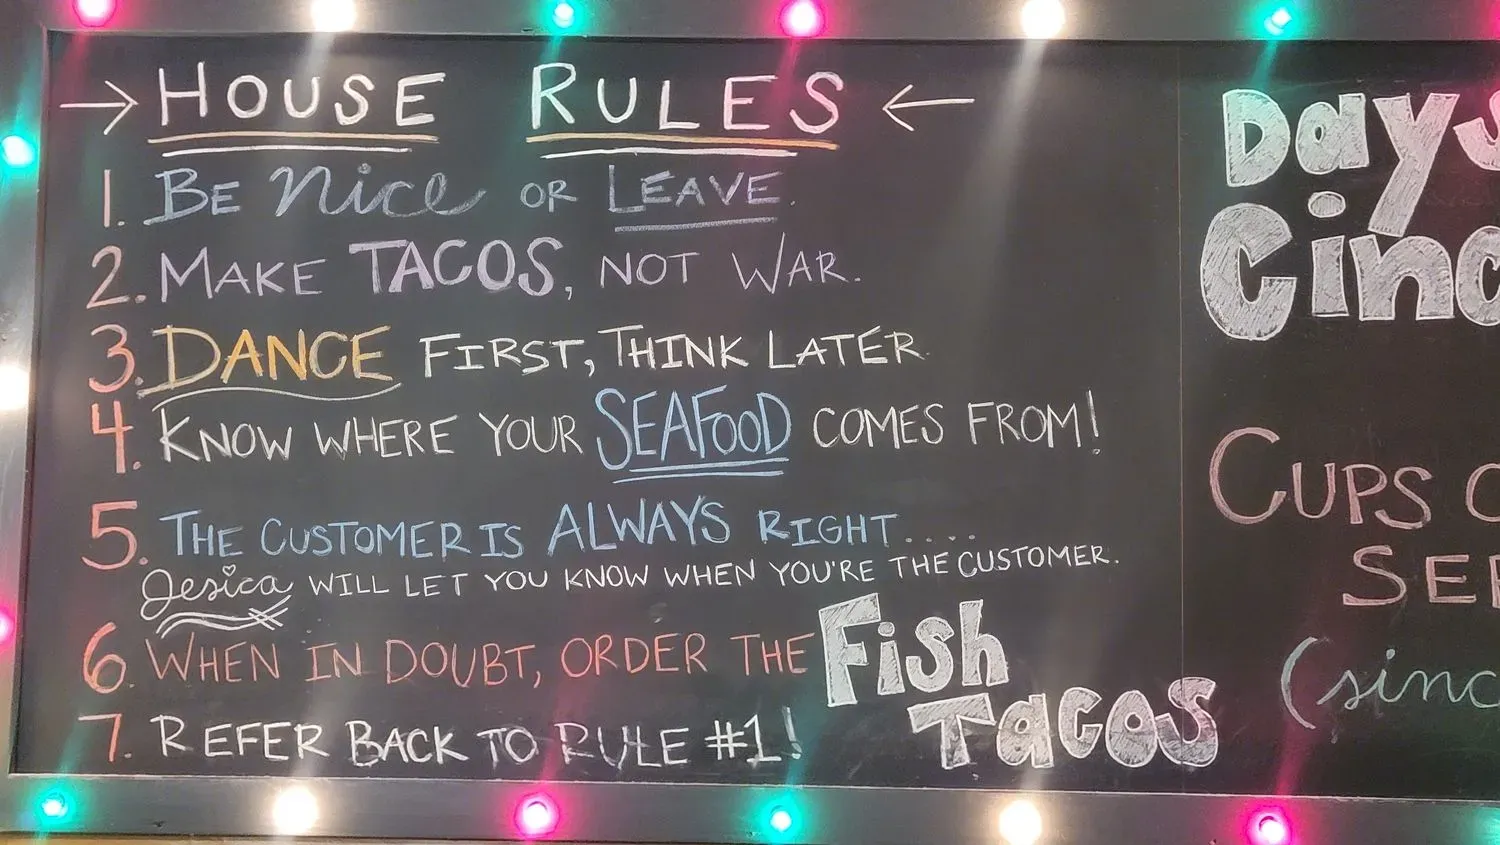 → HOUSE RULES ←
1. BE Nice OR LEAVE.
2. MAKE TACOS, NOT WAR.
3. DANCE FIRST, THINK LATER.
4. KNOW WHERE YOUR SEAFOOD COMES FROM!
5. THE CUSTOMER IS ALWAYS RIGHT....
Jesica WILL LET YOU KNOW WHEN YOU'RE THE CUSTOMER.
6. WHEN IN DOUBT, ORDER THE Fish
TACOS
7. REFER BACK TO RULE #1!
Days
CUPS
(sinc